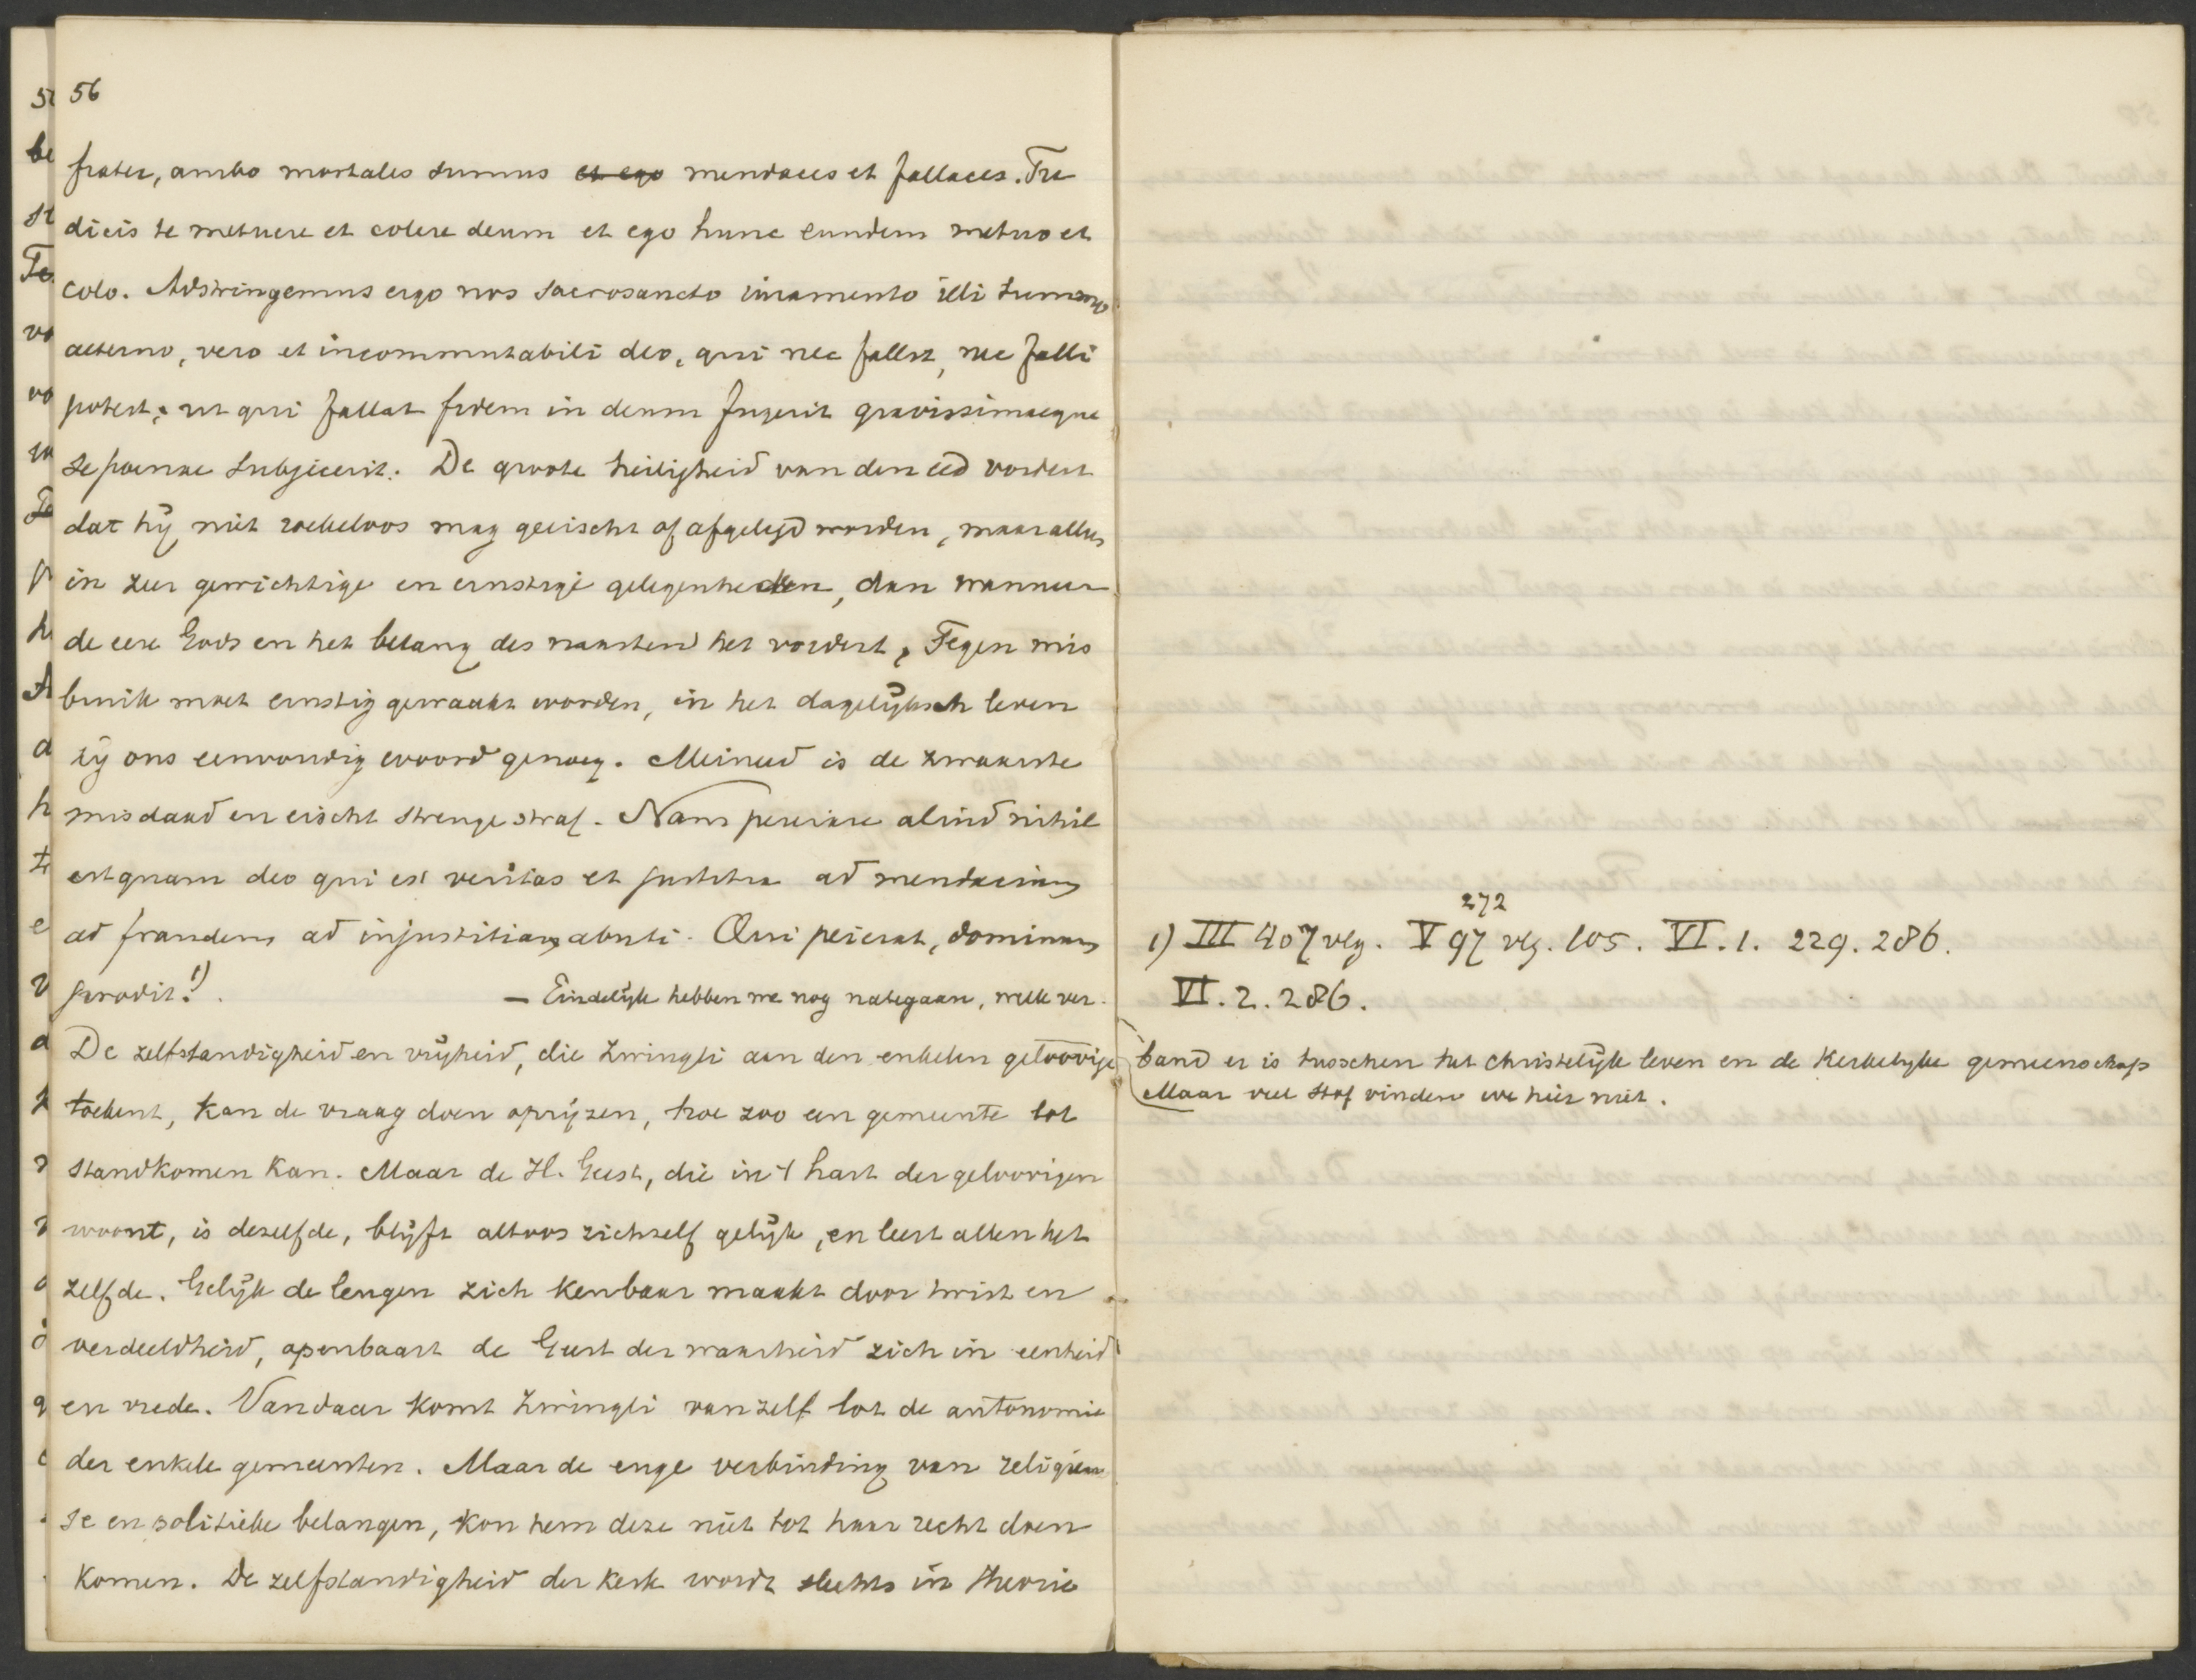 56
frater, ambo mortales sumus et ego mendaces et fallaces. Tu
dicis te metuere et colere deum et ego hunc eundem metuo et
colo. Adstringemus ergo nos sacrosancto iuramento illi summo
aeterno, vero et incommutabili deo, qui nec fallit, nec falli
potest, ut qui fallat fidem in deum fregerit gravissimaeque
se poenae subjicerit. De groote heiligheid van den eed vordert
dat hij niet roekeloos mag geëischt of afgelegd worden, maar alleen
in zeer gewichtige en ernstige gelegenheden, dan wanneer
de eere Gods en het belang des naasten het vordert, Tegen mis
bruik moet ernstig gewaakt worden, in het dagelijksch leven
zij ons eenvoudig woord genoeg. Meineed is de zwaarste
misdaad en eischt strenge straf. Nam peierare aliud nihil
est quam deo qui est veritas et justitia ad mendacium
ad fraudem ad injustitiam abuti. Qui peierat, dominum
prodit. 1)
— Eindelijk hebben we nog nategaan, welk ver-
De zelfstandigheid en vrijheid, die Zwingli aan den enkelen geloovige
toekent, kan de vraag doen oprijzen, hoe zoo een gemeente tot
standkomen kan. Maar de H. Geest, die in 't hart der geloovigen
woont, is dezelfde, blijft altoos zichzelf gelijk, en leert allen het
zelfde. Gelijk de leugen zich kenbaar maakt door twist en
verdeeldheid, openbaart de Geest der waarheid zich in eenheid
en vrede. Vandaar komt Zwingli van zelf tot de autonomie
der enkele gemeenten. Maar de enge verbinding van religieu
se en politieke belangen, kon hem deze niet tot haar recht doen
komen. De zelfstandigheid der kerk wordt slechts in theorie
272
1) III 407 vlg. V 97 vlg. 105. VI. 1. 229. 286.
VI. 2. 286.
band er is tusschen het christelijk leven en de Kerkelijke gemeenschap
Maar veel stof vinden we hier niet.